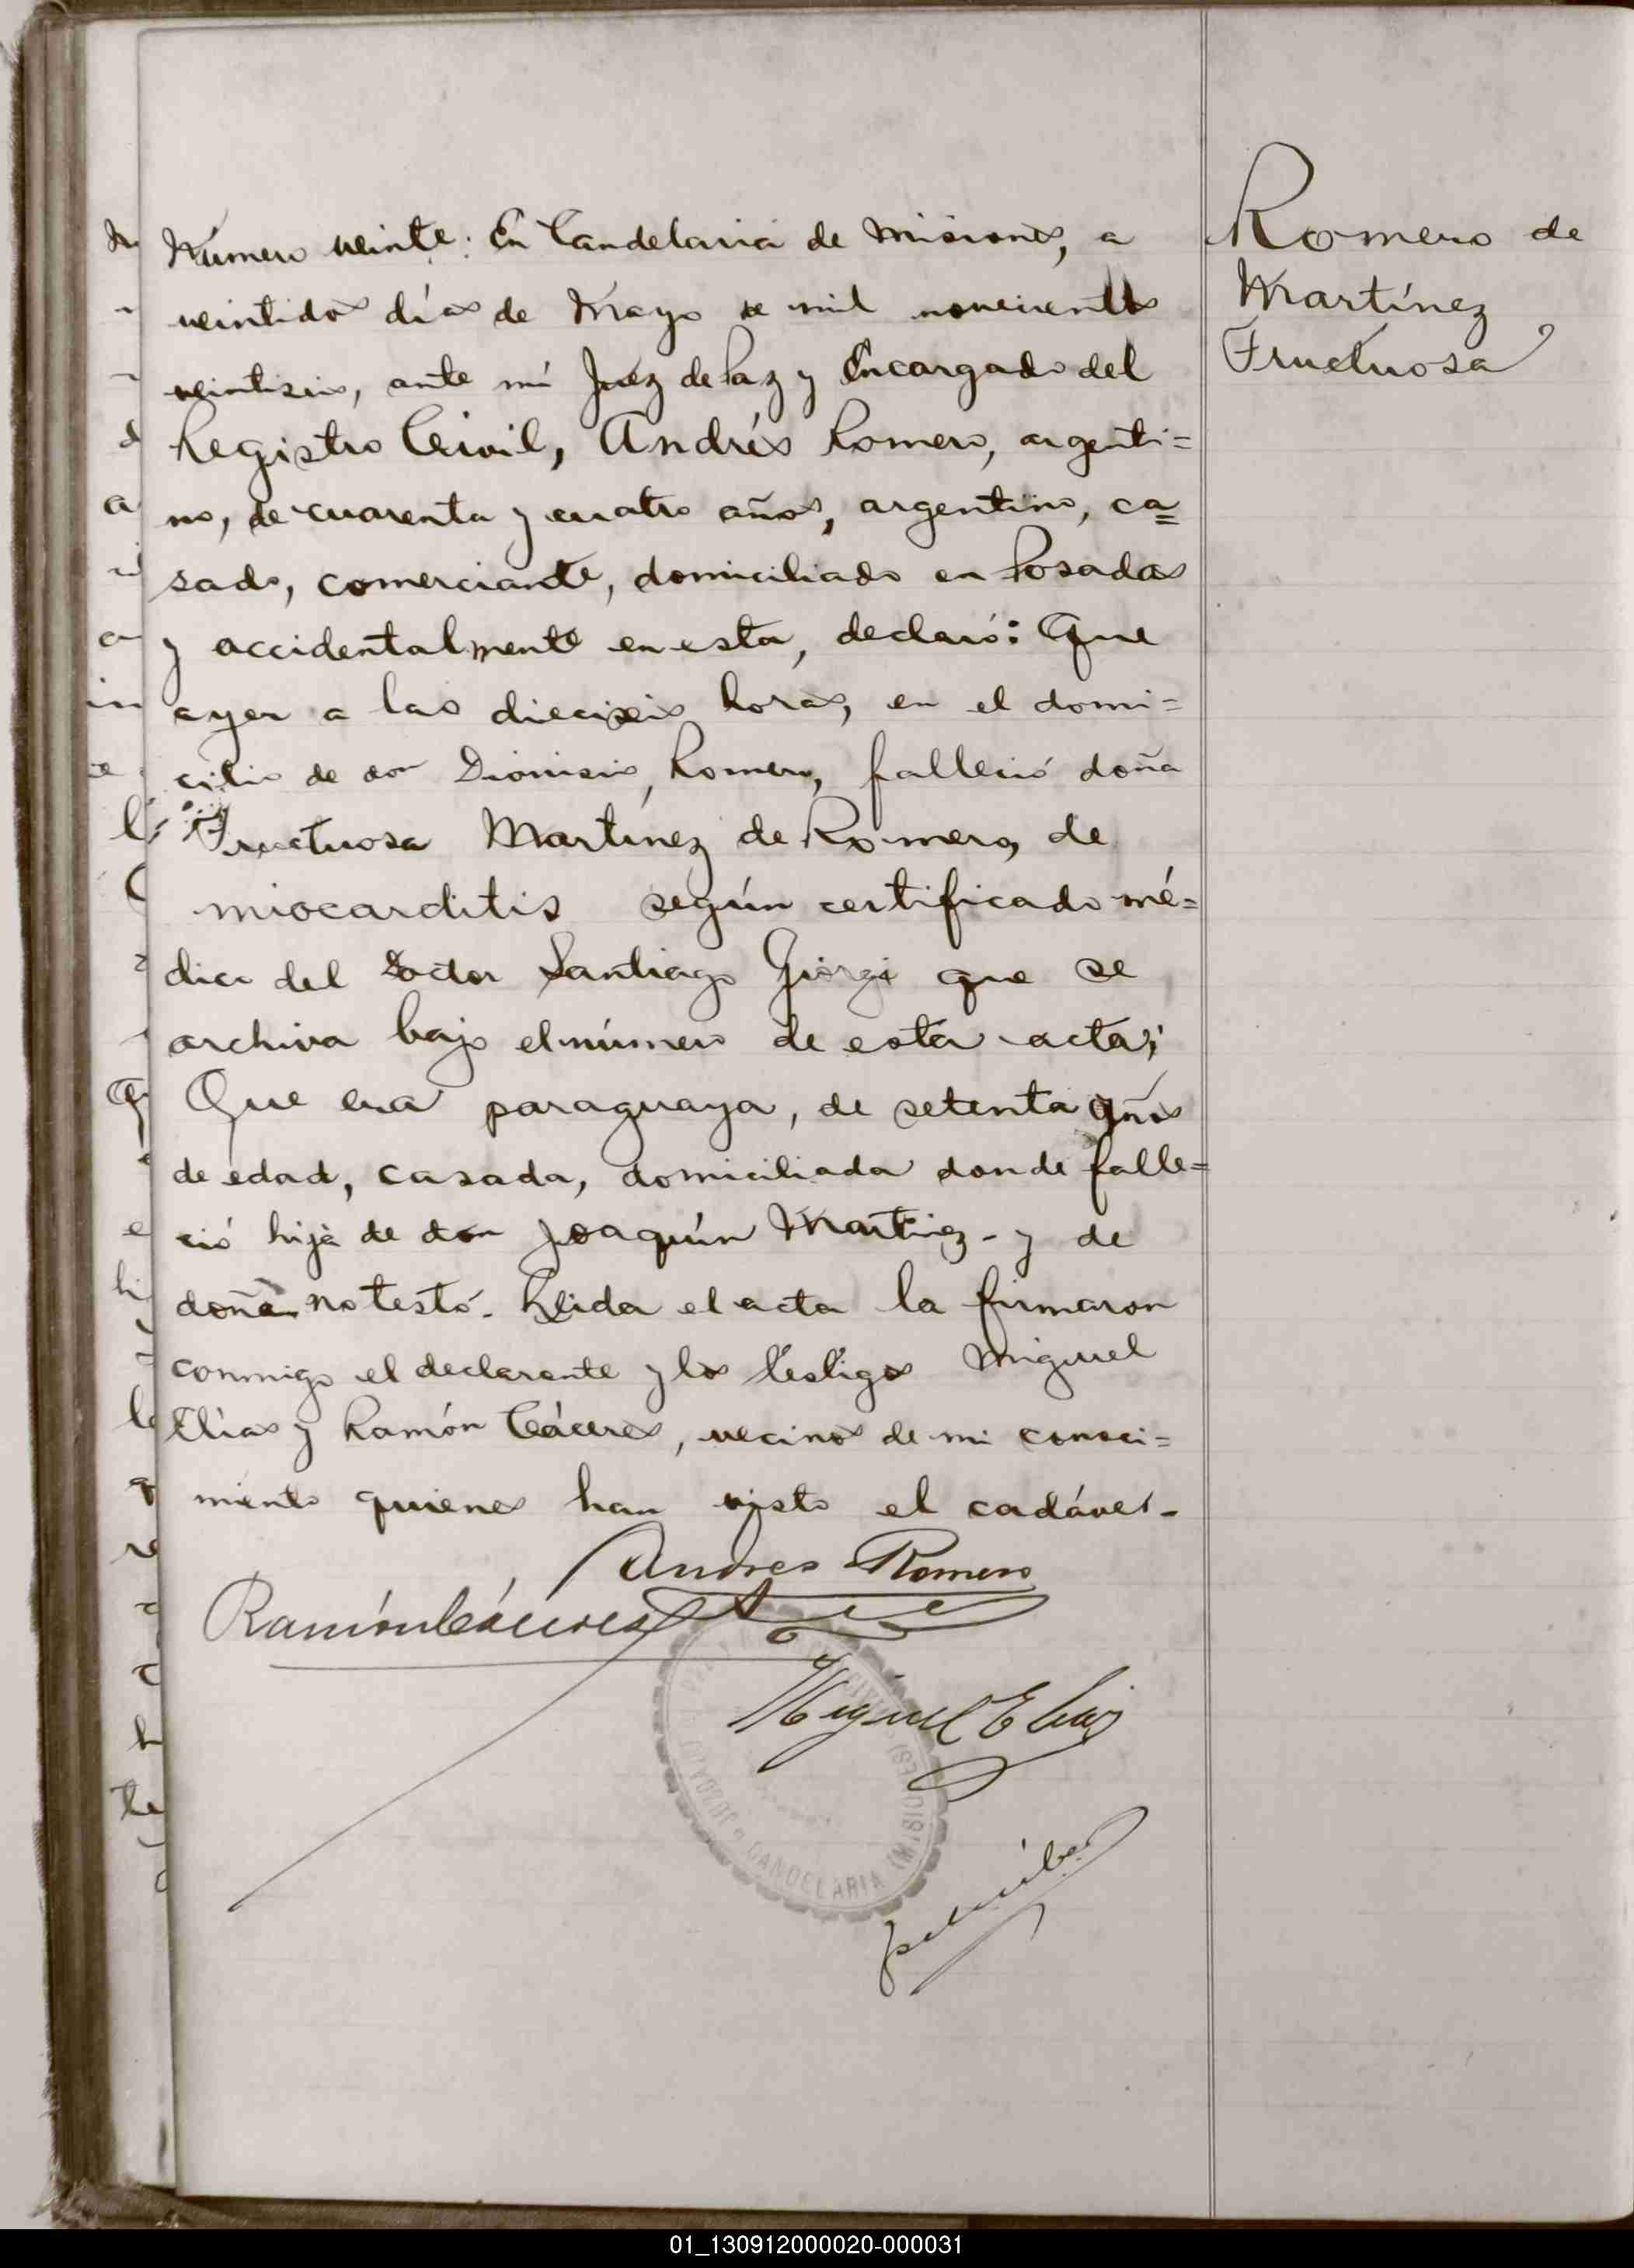 Romero de
Martínez
Fructuosa
Número veinte: En Candelaria de Misiones, a
veintidos días de Mayo de mil novecientos
veintiseis, ante mí Juez de Paz y Encargado del
Registro Civil, Andrés Romero, argenti=
no, de cuarenta y cuatro años, argentino, ca=
sado, comerciante, domiciliado en Posadas
y accidentalmente en esta, declaró: Que
ayer a las dieciseis horas, en el domi=
cilio de don Dionisio Romero, falleció doña
Fructuosa Martínez de Romero, de
miocarditis según certificado mé=
dico del Doctor Santiago Giorgi que se
archiva bajo el número de esta acta;
Que era paraguaya, de setenta años
de edad, casada, domiciliada donde falle=
ció hija de don Joaquín Martinez - y de
doña no testó. Leida el acta la firmaron
conmigo el declarante y los testigos Miguel
Elías y Ramón Cáceres, vecinos de mi conoci=
miento quienes han visto el cadáver.
Andres Romero
Ramón Cáceres
Miguel Elias
CANDELARIA (MISIONES)
01_130912000020-000031